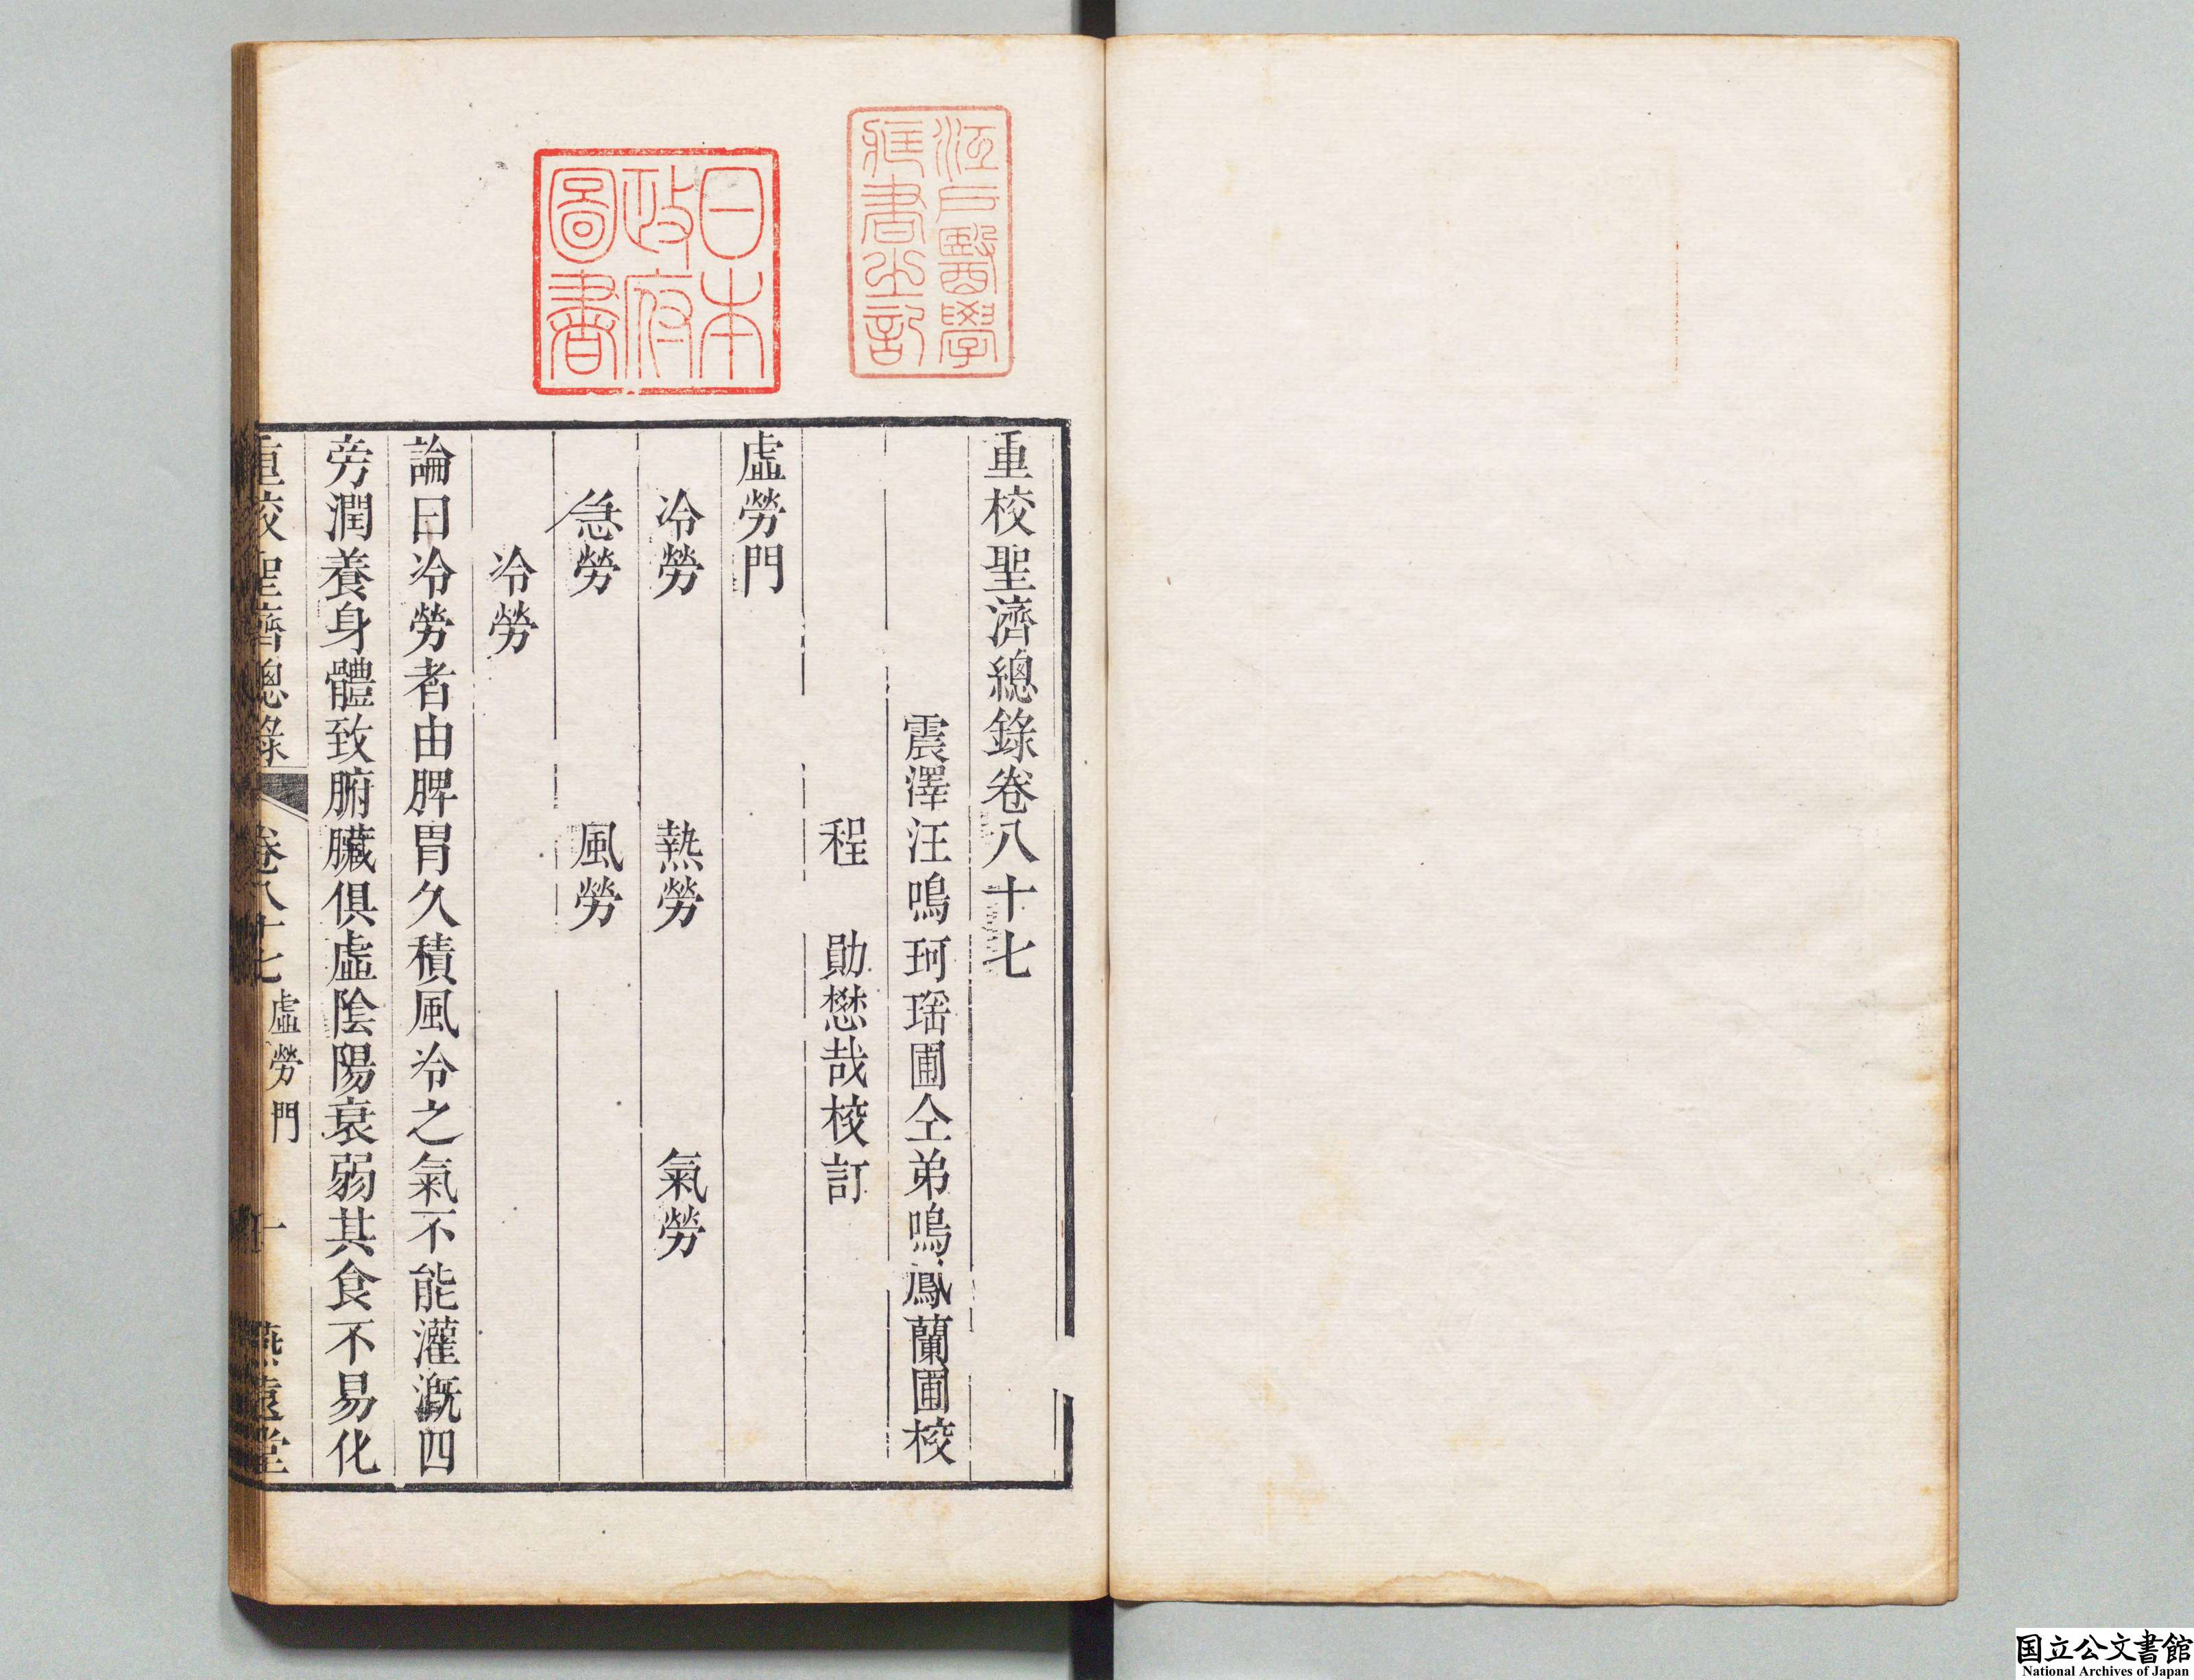 江戸醫學
藏書之記
日本
政府
圖書
重校聖濟總錄卷八十七
震澤汪鳴珂瑶圃仝弟鳴鳳蘭圃校
程　勛懋哉校訂
虛勞門
冷勞　熱勞　氣勞
急勞　風勞
冷勞
論曰冷勞者由脾胃久積風冷之氣不能灌漑四
旁潤養身體致腑臟俱虛陰陽衰弱其食不易化
重校聖濟總錄　卷八十七　虛勞門　一　燕遠堂
国立公文書館
National Archives of Japan